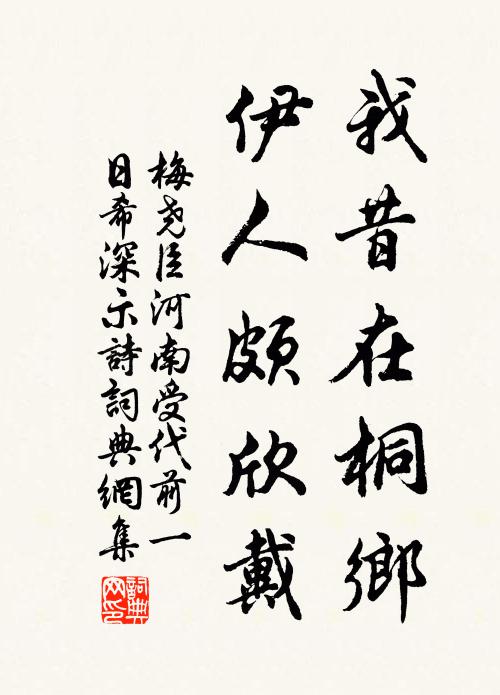 我昔在桐鄉
伊人頗欣戴
梅堯臣河南受代前一
日希深示詩詞典網集
詞典網印